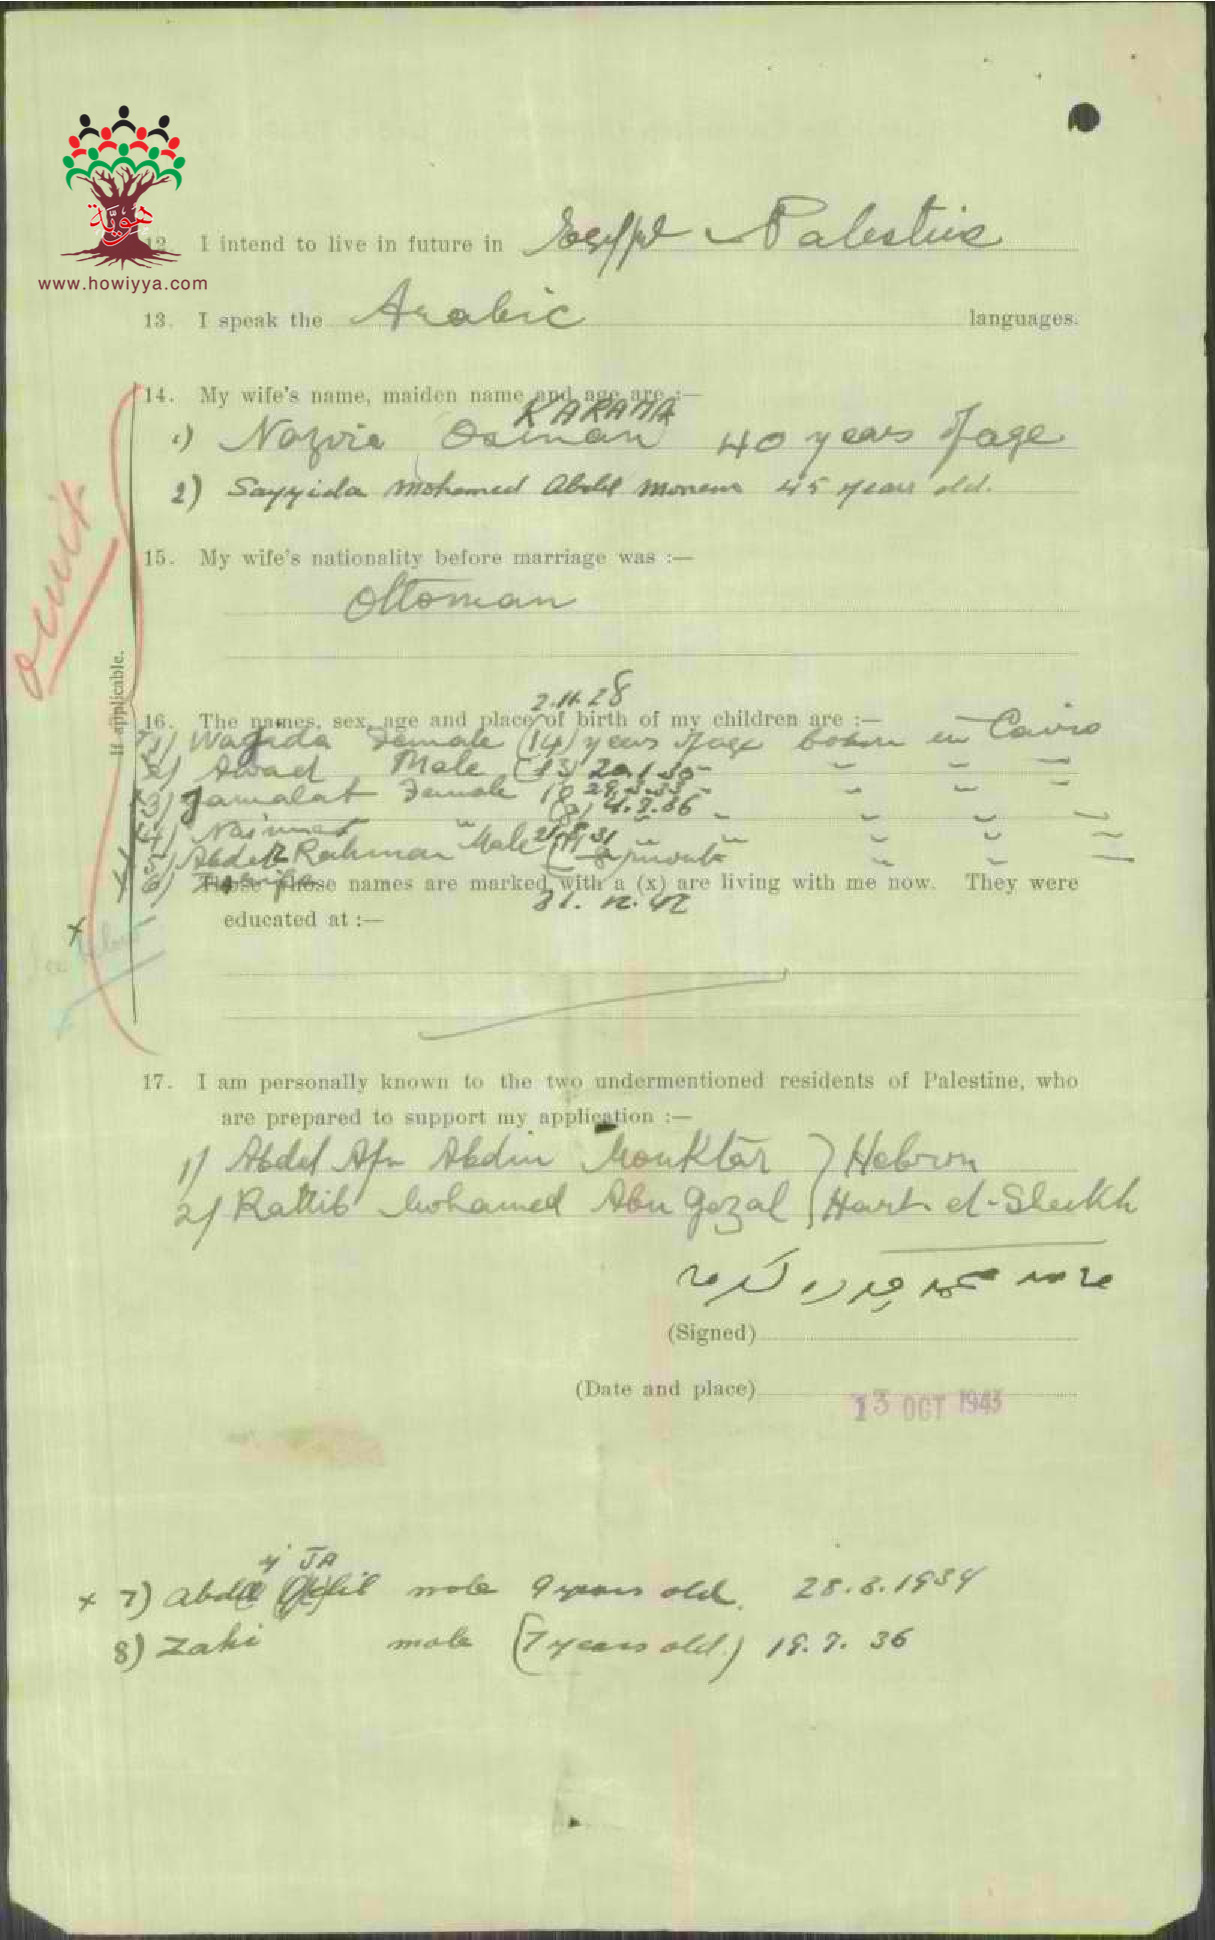 هويّة
www.howiyya.com
12. I intend to live in future in Egypt & Palestine
13. I speak the Arabic languages.
14. My wife's name, maiden name and age are :—
KARAMA
1) Nazvia Osman 40 years of age
2) Sayyida Mohamed Abdel Monem 45 years old.
omit
15. My wife's nationality before marriage was :—
Ottoman
If applicable.
2.11.28
16. The names, sex, age and place of birth of my children are :—
1) Wagida Female (14) years of age born in Cairo
2) Awad Male (13) 20.1.30
3) Jamalat Female
4.7.36
4)
5) Abdel Rahman Male
6)
Those whose names are marked with a (x) are living with me now. They were
31.12.42
educated at :—
x
See below
17. I am personally known to the two undermentioned residents of Palestine, who
are prepared to support my application :—
1) Abdel Afu Abdin Mouktar } Hebron
2) Rattib Mohamed Abu Gozal } Hart el-Sheikh
محمد كرامه
(Signed)
(Date and place)
13 OCT 1943
JA
x 7) Abdel Galil male 9 years old. 28.8.1934
8) Zaki male (7 years old.) 19.7.36